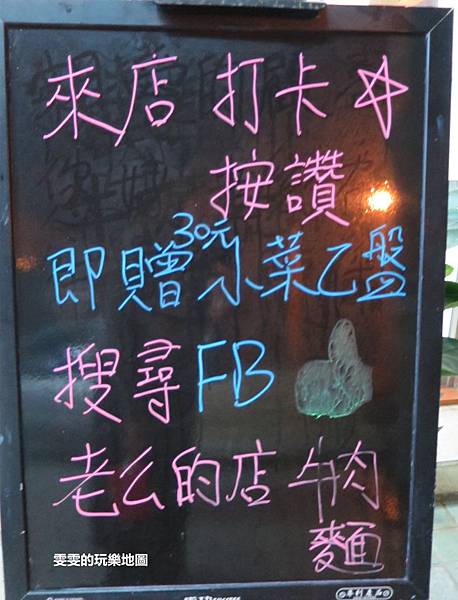 來店打卡☆
按讚
30元
即贈小菜乙盤
搜尋FB
老么的店牛肉
麵
雯雯的玩樂地圖
專利產品